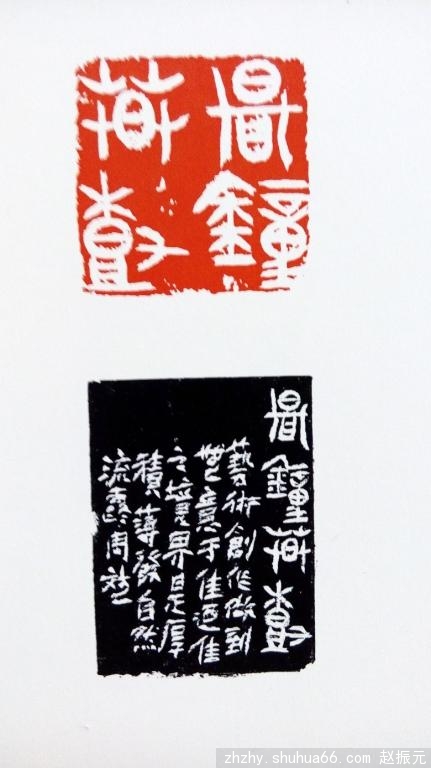 晨鐘
莫鼓
晨鐘莫鼓
藝術創作做到
無意于佳迺佳
之境界是厚
積薄發自然
流露周
zhzhy.shuhua66.com 赵振元